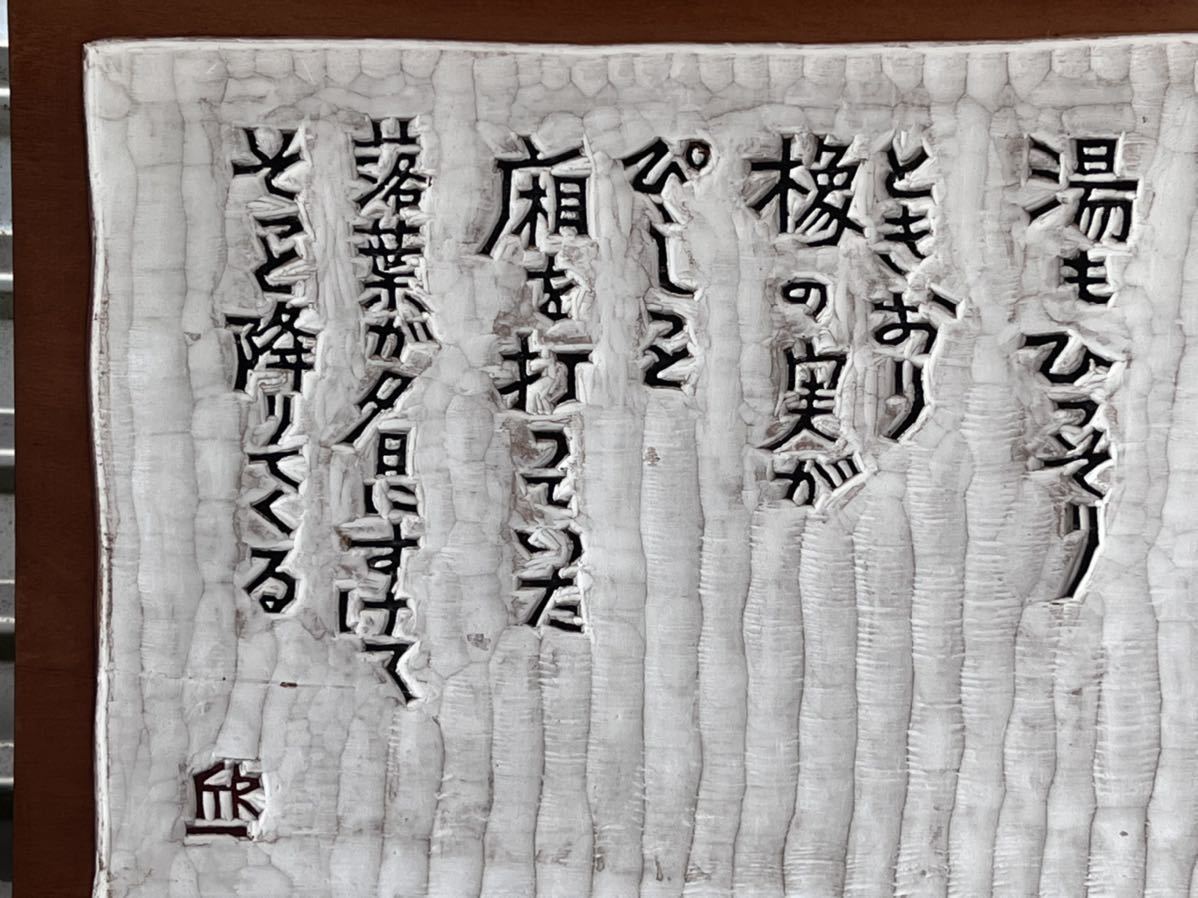 湯もひっそり
ときおり
橡の実が
ぴしっと
廂を打っていた
落葉が夕日にすけて
そっと降りてくる